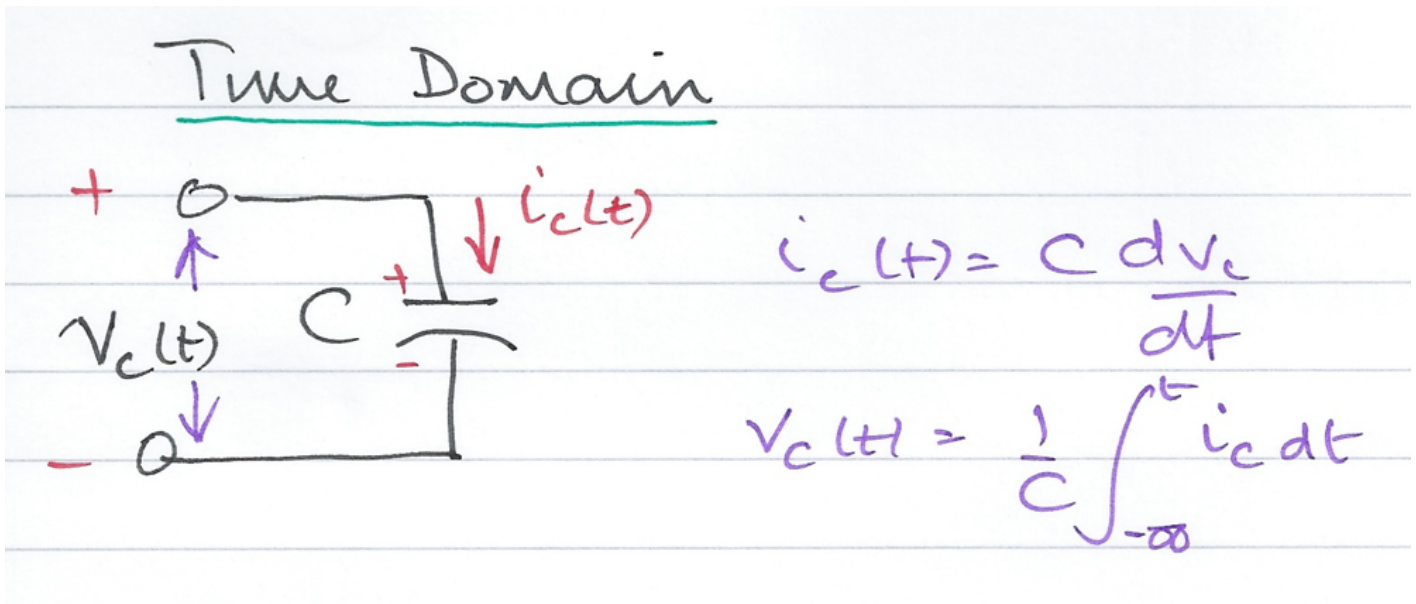 Time Domain
+ i_c(t)
i_c(t) = C dv_c/dt
+
C
V_c(t)
-
v_c(t) = 1/C ∫_{-∞}^{t} i_c dt
-